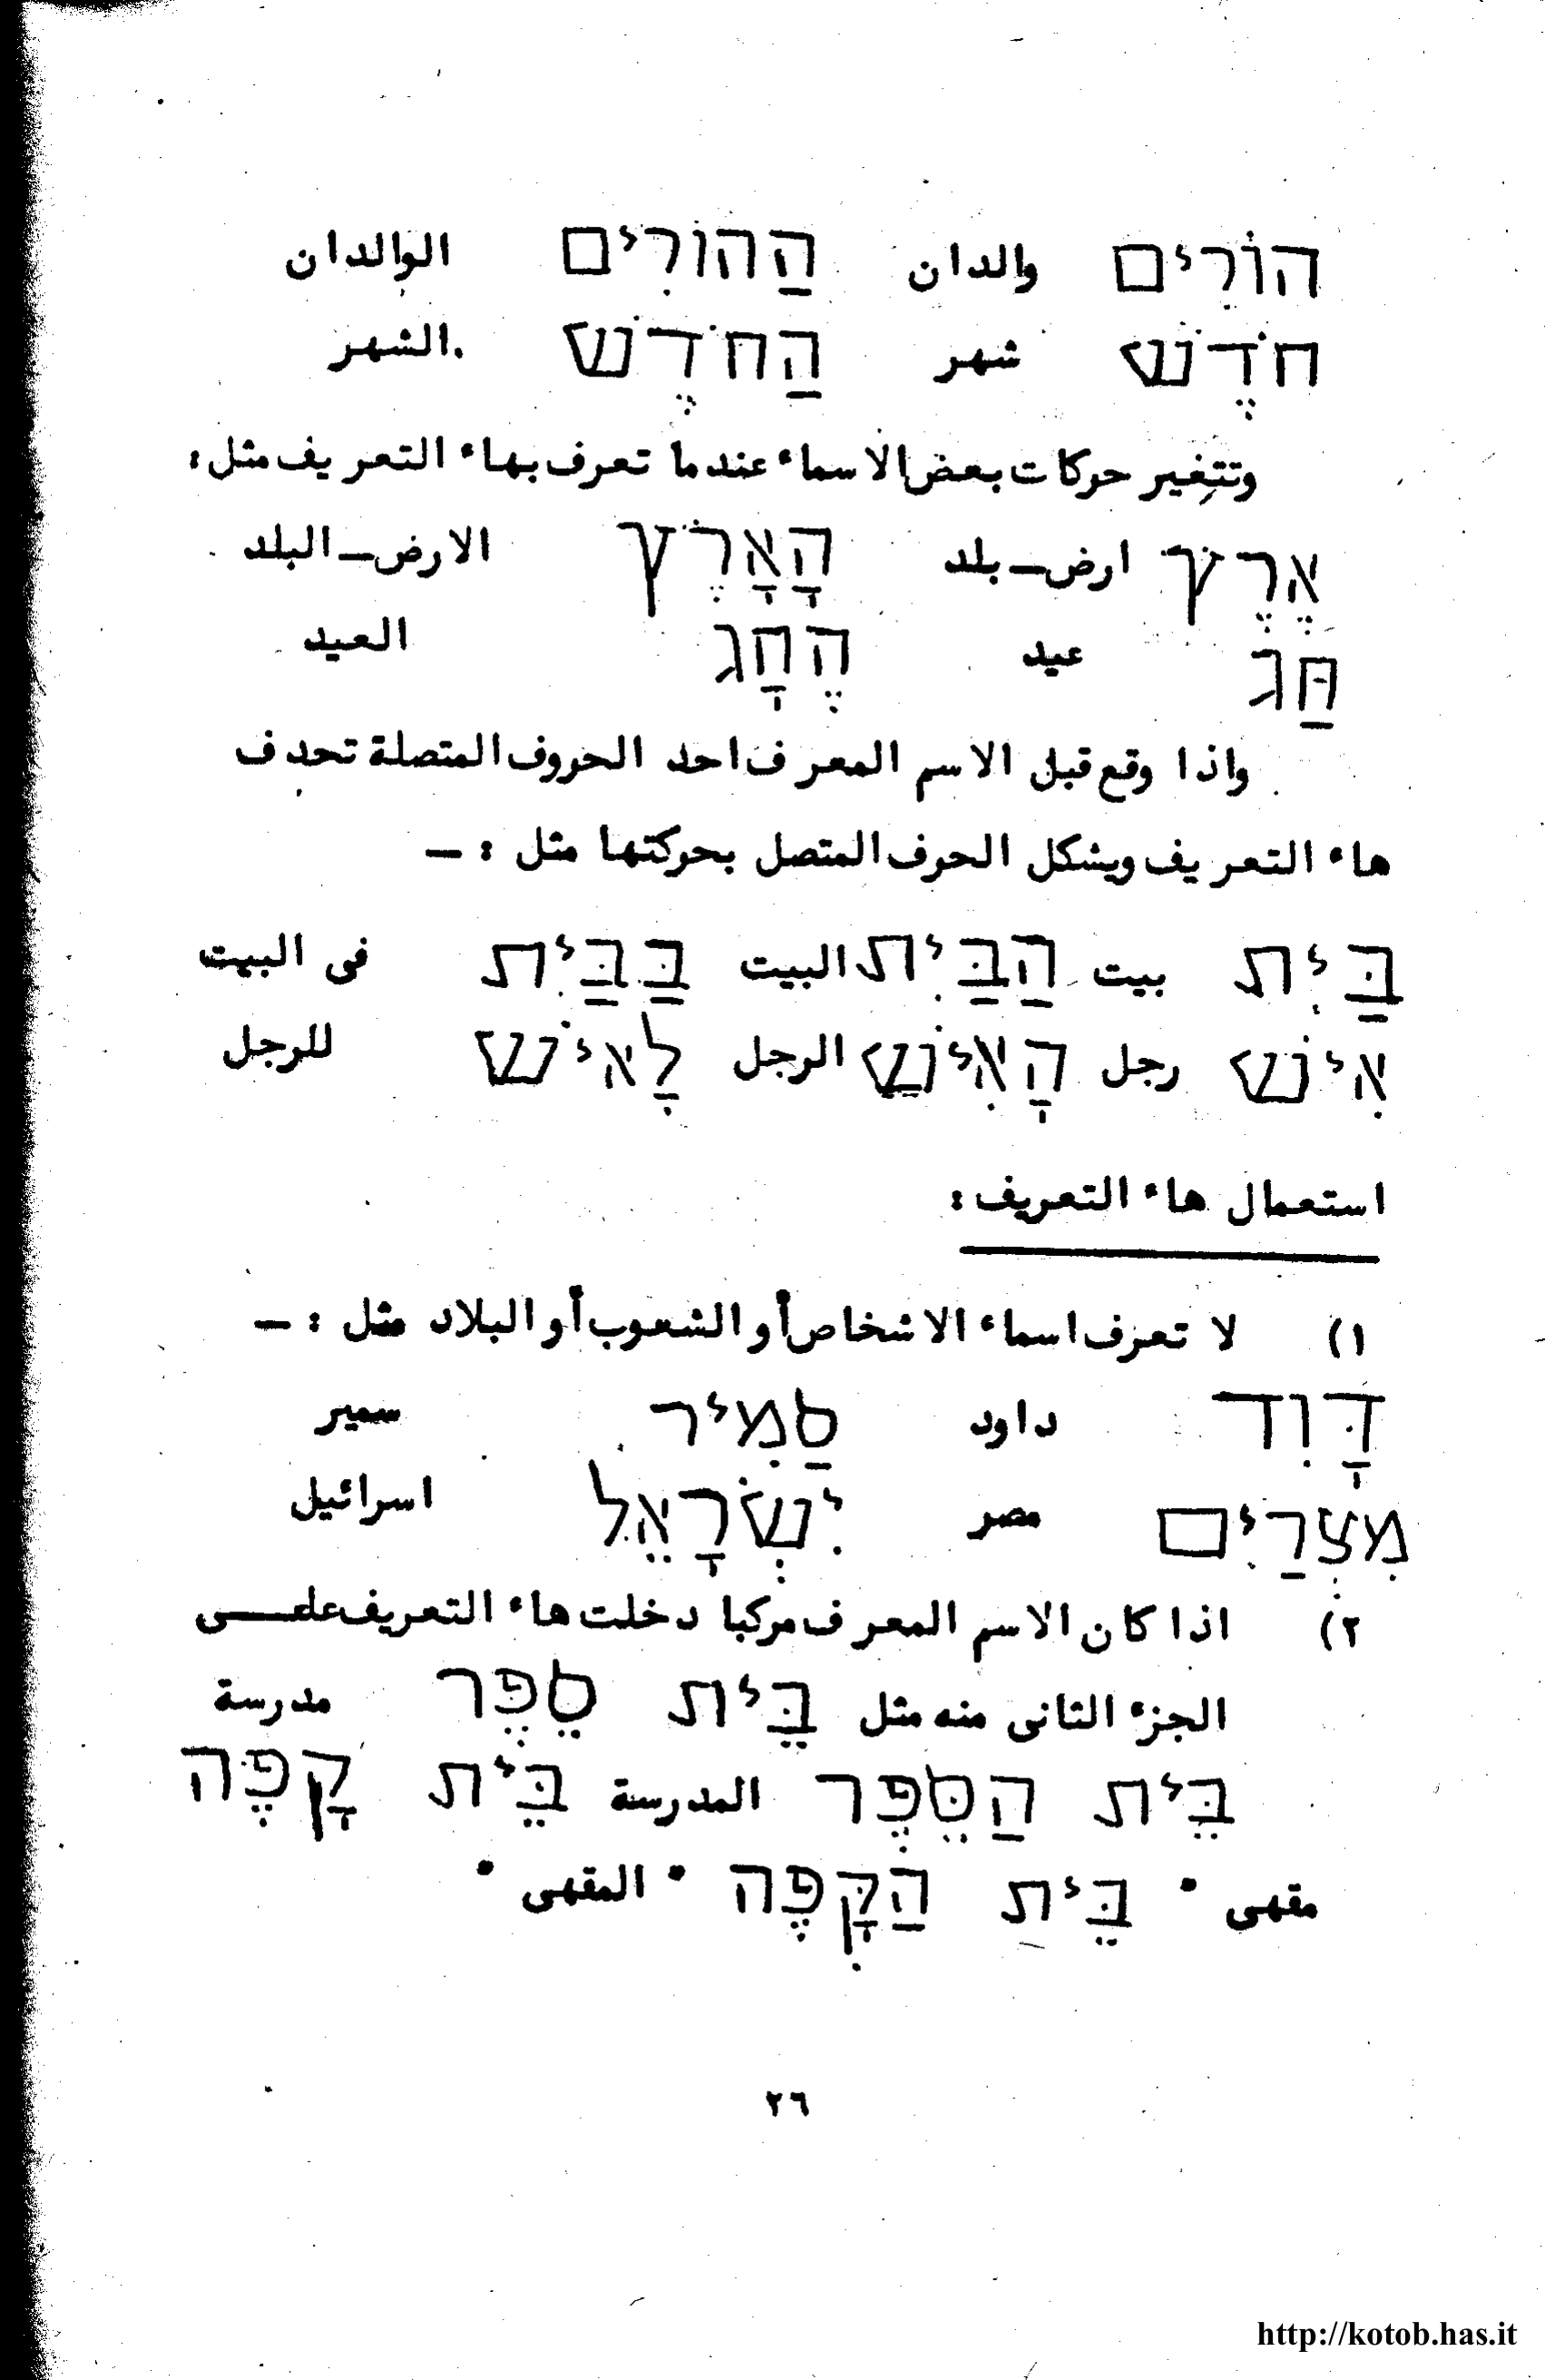 הוֹרִים والدان הַהוֹרִים الوالدان
חֹדֶשׁ شهر הַחֹדֶשׁ الشهر
وتتغير حركات بعض الاسماء عندما تعرف بهاء التعريف مثل:
אֶרֶץ ارض–بلد הָאָרֶץ الارض–البلد
חַג عيد הֶחָג العيد
واذا وقع قبل الاسم المعرف احد الحروف المتصلة تحدف
هاء التعريف ويشكل الحرف المتصل بحركتها مثل :–
בַּיִת بيت הַבַּיִת البيت בַּבַּיִת فى البيت
אִישׁ رجل הָאִישׁ الرجل לָאִישׁ للرجل
استعمال هاء التعريف:
١) لا تعرف اسماء الاشخاص أو الشعوب أو البلاد مثل :–
דָּוִד داود סַמִיר سمير
מִצְרַיִם مصر יִשְׂרָאֵל اسرائيل
٢) اذا كان الاسم المعرف مركبا دخلت هاء التعريف علـــى
الجزء الثانى منه مثل בֵּית סֵפֶר مدرسة
בֵּית הַסֵּפֶר المدرسة בֵּית קָפֶּה
مقهى • בֵּית הַקָּפֶּה • المقهى •
٢٦
http://kotob.has.it